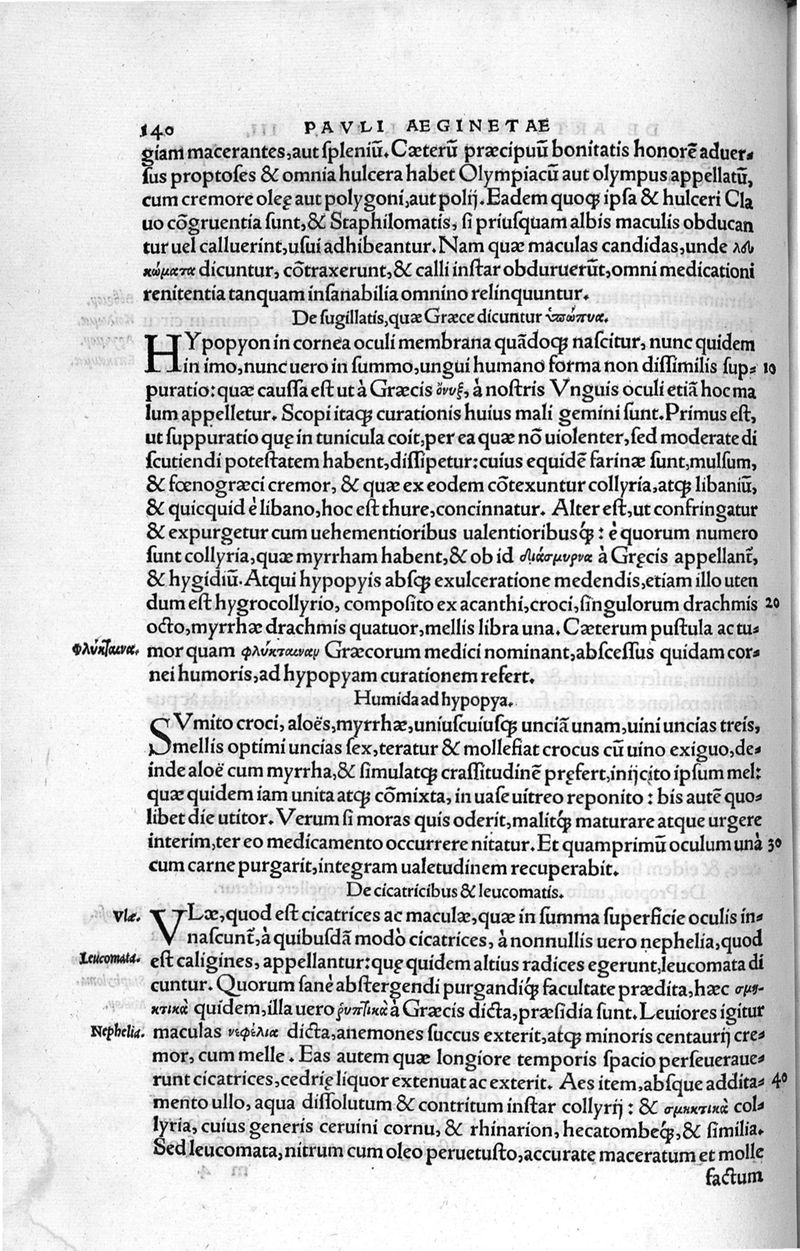 140 PAVLI AEGINETAE
giam macerantes, aut spleniū. Cæterū præcipuū bonitatis honorē aduer-
sus proptoses & omnia hulcera habet Olympiacū aut olympus appellatū,
cum cremore oleę aut polygoni, aut polij. Eadem quoq; ipsa & hulceri Cla
uo cōgruentia sunt, & Staphilomatis, si priusquam albis maculis obducan
tur uel calluerint, usui adhibeantur. Nam quæ maculas candidas, unde λδυ
κώματα dicuntur, cōtraxerunt, & calli instar obduruerūt, omni medicationi
renitentia tanquam insanabilia omnino relinquuntur.
De sugillatis, quæ Græce dicuntur ὑπώπυα.
HYpopyon in cornea oculi membrana quādoq; nascitur, nunc quidem
in imo, nunc uero in summo, ungui humano forma non dissimilis sup- 10
puratio: quæ caussa est ut à Græcis ὄνυξ, à nostris Vnguis oculi etiā hoc ma
lum appelletur. Scopi itaq; curationis huius mali gemini sunt. Primus est,
ut suppuratio quę in tunicula coit, per ea quæ nō uiolenter, sed moderate di
scutiendi potestatem habent, dissipetur: cuius equidē farinæ sunt, mulsum,
& fœnogræci cremor, & quæ ex eodem cōtexuntur collyria, atq; libaniū,
& quicquid è libano, hoc est thure, concinnatur. Alter est, ut confringatur
& expurgetur cum uehementioribus ualentioribusq́; : è quorum numero
sunt collyria, quæ myrrham habent, & ob id διάσμυρνα à Gręcis appellant̃,
& hygidiū. Atqui hypopyis absq; exulceratione medendis, etiam illo uten
dum est hygrocollyrio, composito ex acanthi, croci, singulorum drachmis 20
octo, myrrhæ drachmis quatuor, mellis libra una. Cæterum pustula ac tu-
Φλύκταινα. mor quam φλύκταιναν Græcorum medici nominant, abscessus quidam cor-
nei humoris, ad hypopyam curationem refert.
Humida ad hypopya.
SVmito croci, aloës, myrrhæ, uniuscuiusq; unciā unam, uini uncias treis,
mellis optimi uncias sex, teratur & mollefiat crocus cū uino exiguo, de-
inde aloë cum myrrha, & simulatq; crassitudinē pręfert, inijcito ipsum mel:
quæ quidem iam unita atq; cōmixta, in uase uitreo reponito : bis autē quo-
libet die utitor. Verum si moras quis oderit, malitq́; maturare atque urgere
interim, ter eo medicamento occurrere nitatur. Et quamprimū oculum unà 30
cum carne purgarit, integram ualetudinem recuperabit.
De cicatricibus & leucomatis.
Vlæ. VLæ, quod est cicatrices ac maculæ, quæ in summa superficie oculis in-
nascunt̃, à quibusdā modò cicatrices, à nonnullis uero nephelia, quod
Leucomata. est caligines, appellantur: quę quidem altius radices egerunt, leucomata di
cuntur. Quorum sanè abstergendi purgandiq́; facultate prædita, hæc σμη-
κτικὰ quidem, illa uero ῥυπτικὰ à Græcis dicta, præsidia sunt. Leuiores igitur
Nephelia. maculas νεφέλια dicta, anemones succus exterit, atq; minoris centaurij cre-
mor, cum melle. Eas autem quæ longiore temporis spacio perseueraue-
runt cicatrices, cedrię liquor extenuat ac exterit. Aes item, absque addita- 40
mento ullo, aqua dissolutum & contritum instar collyrij : & σμηκτικὰ col-
lyria, cuius generis ceruini cornu, & rhinarion, hecatombeq́;, & similia.
Sed leucomata, nitrum cum oleo peruetusto, accurate maceratum et molle
factum